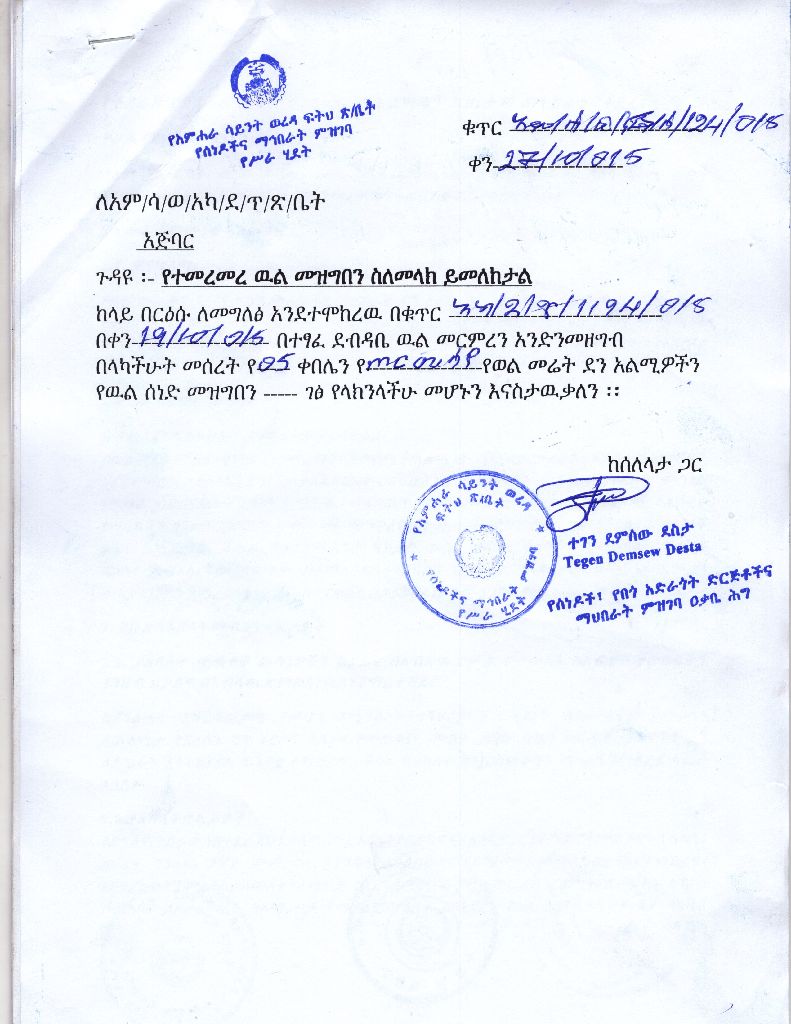 የአምሐራ ሳይንት ወረዳ ፍትህ ጽ/ቤት
የሰነዶችና ማኅበራት ምዝገባ
የሥራ ሂደት
ቁጥር /124/015
ቀን 27/10/015
ለአም/ሳ/ወ/አካ/ደ/ጥ/ጽ/ቤት
አጅባር
ጉዳዩ ፡- የተመረመረ ዉል መዝግበን ስለመላክ ይመለከታል
ከላይ በርዕሱ ለመግለፅ እንደተሞከረዉ በቁጥር /1194/015
በቀን 19/10/015 በተፃፈ ደብዳቤ ዉል መርምረን እንድንመዘግብ
በላካችሁት መሰረት የ05 ቀበሌን የ የወል መሬት ደን አልሚዎችን
የዉል ሰነድ መዝግበን ----- ገፅ የላክንላችሁ መሆኑን እናስታዉቃለን ፡፡
ከሰለላታ ጋር
የአምሐራ ሳይንት ወረዳ
ፍትህ ጽ/ቤት
የሰነዶችና ማኅበራት ምዝገባ
የሥራ ሂደት
ተገን ደምሰው ደስታ
Tegen Demsew Desta
የሰነዶች፣ የበጎ አድራጎት ድርጅቶችና
ማህበራት ምዝገባ ዐቃቤ ሕግ